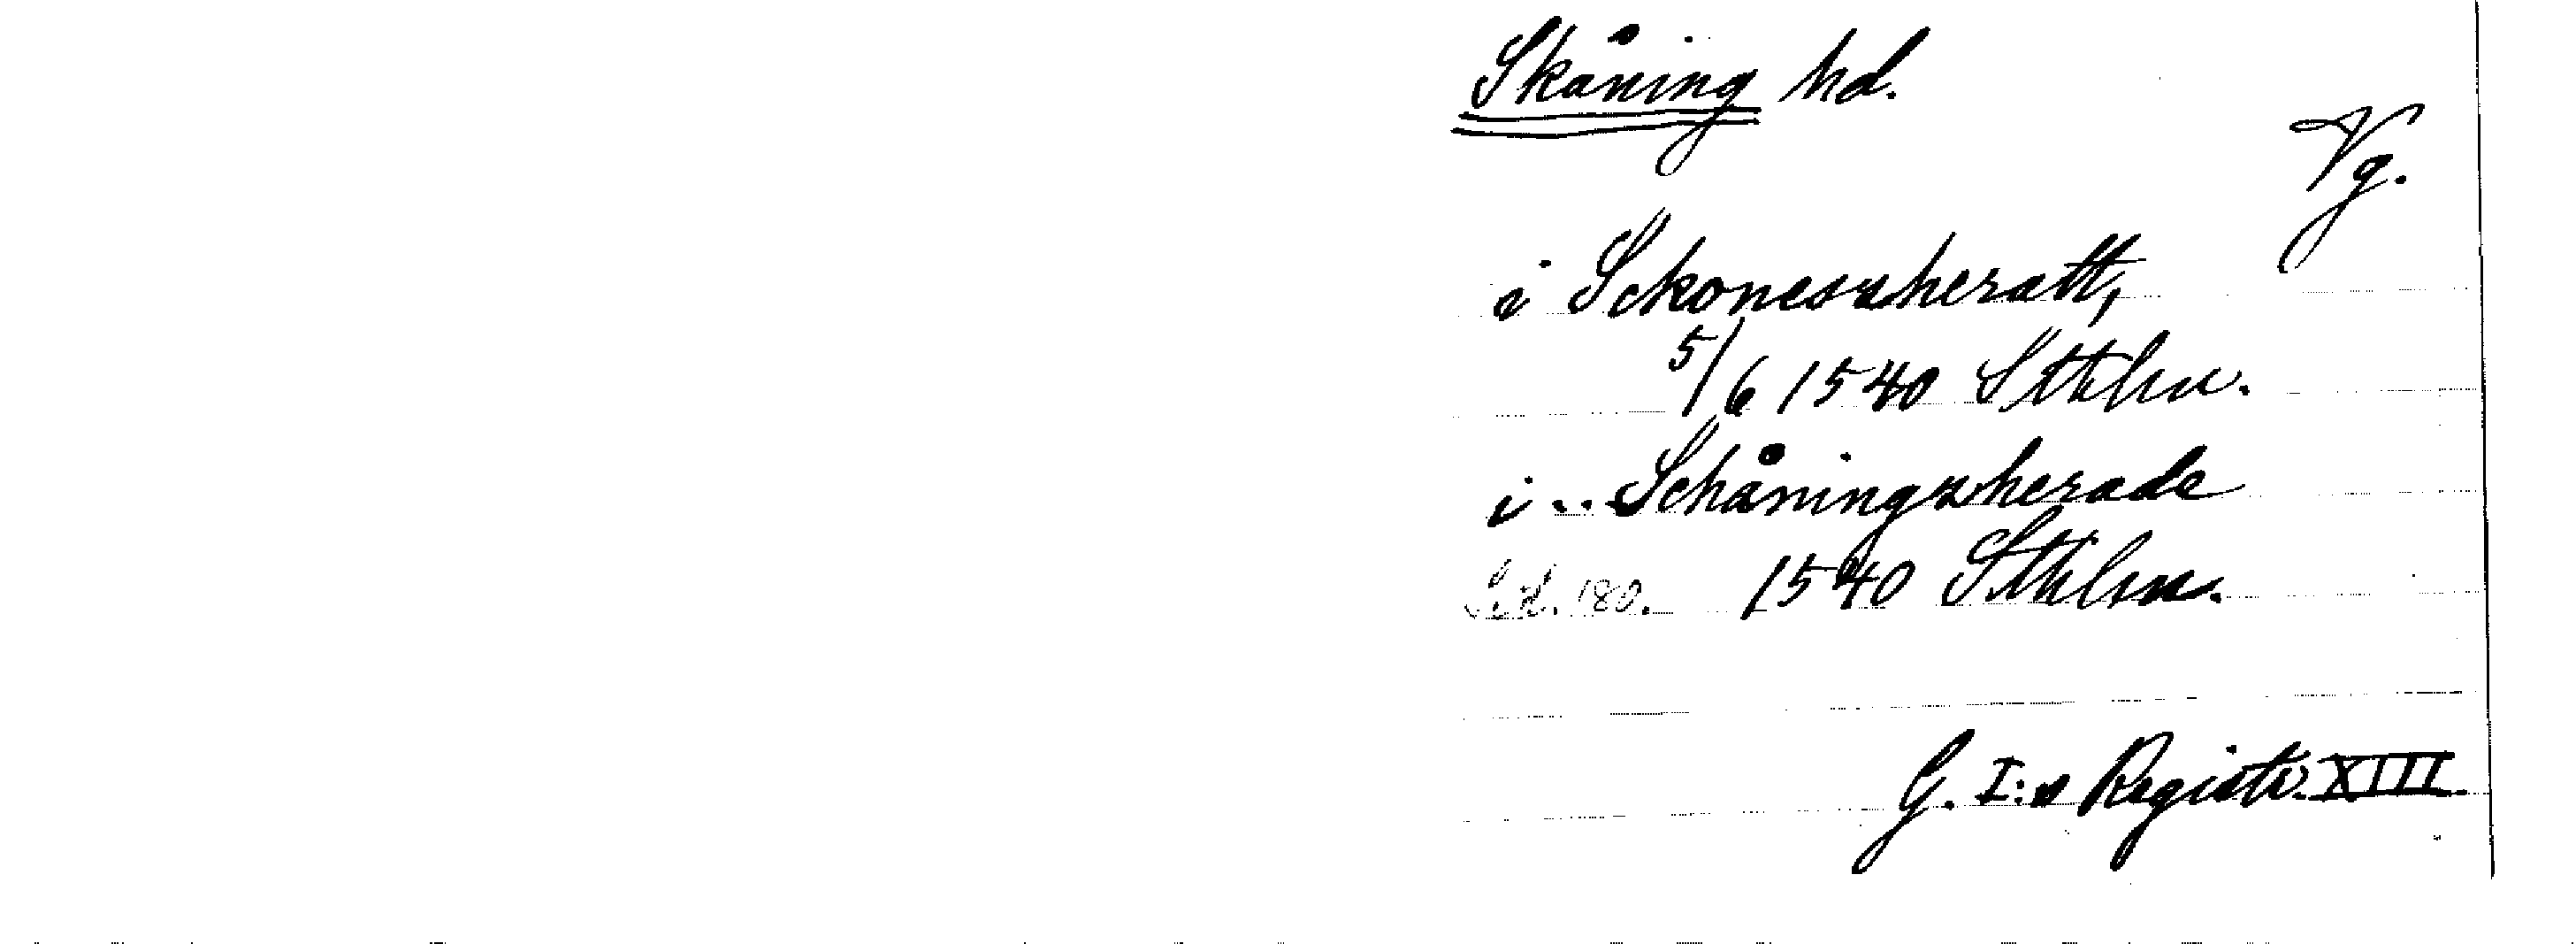 Skåning hd.
Vg.
i Sckonesszheratt,
5/6 1540 Sthlm.
i .. Schåningxherade
1540 Sthlm.
G. I:s Registr. XIII